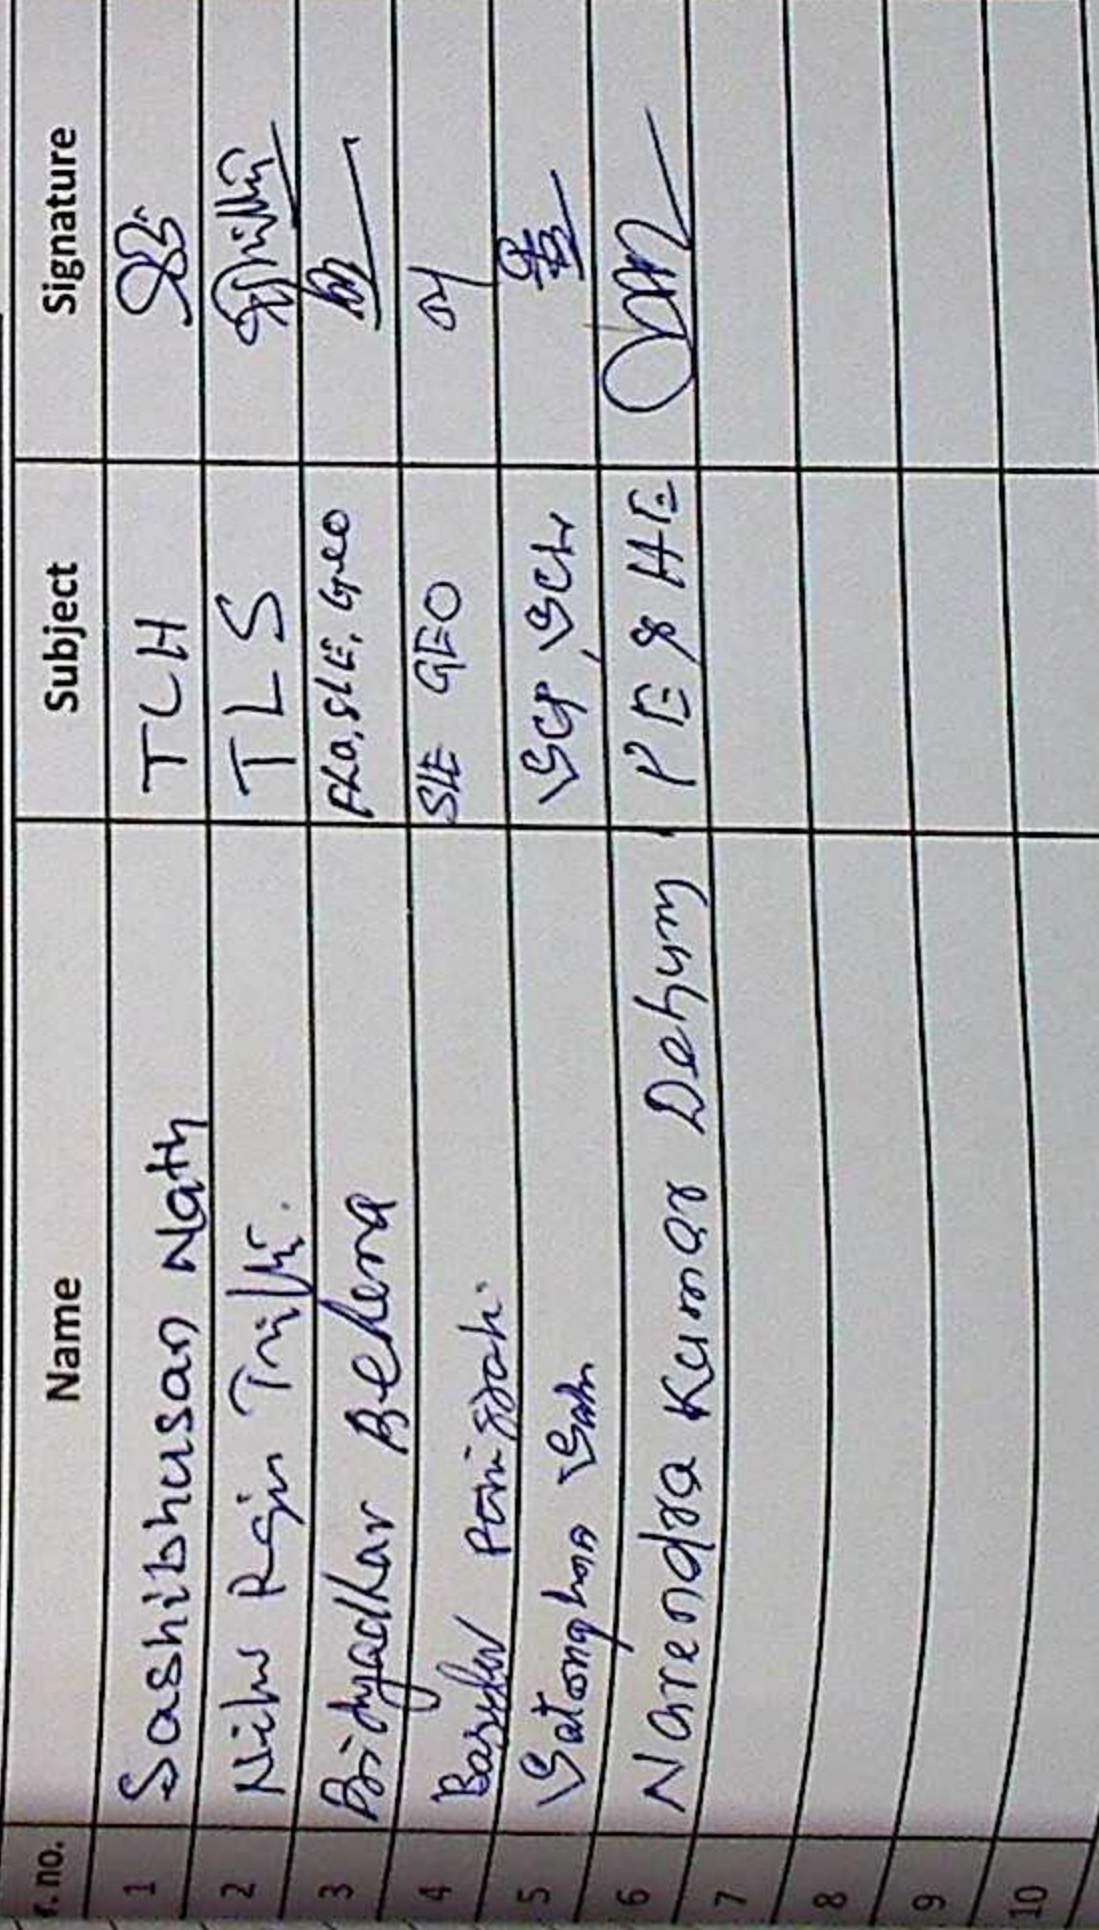 r. no. Name Subject Signature
1 Sashibhusan Nath TCH
2 TLS
3 Bidyadhar Behera FLO, SLE, Geo
4 Basudev Panigrahi. SLE GEO
5 Satrughna Sahu SCP, SCH
6 Narendra Kumar Dehury PE & HE
7
8
9
10